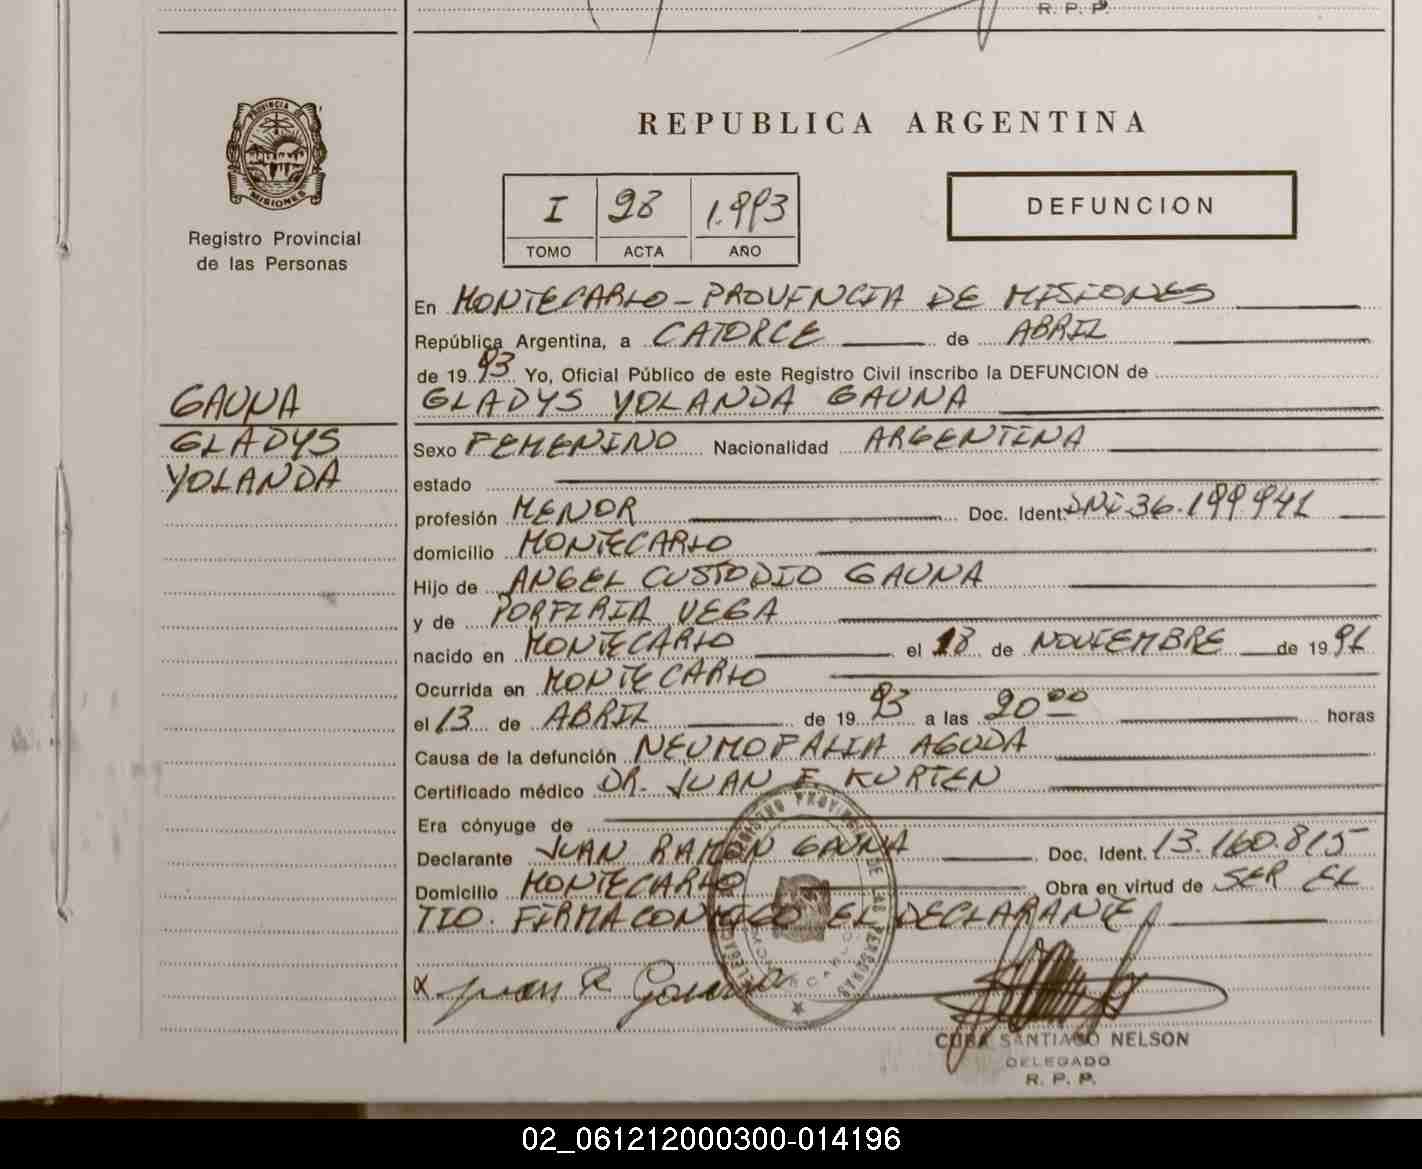 R. P. P.
PROVINCIA DE
MISIONES
Registro Provincial
de las Personas
REPUBLICA ARGENTINA
I 28 1.993
TOMO ACTA AÑO
DEFUNCION
En MONTECARLO - PROVINCIA DE MISIONES
República Argentina, a CATORCE de ABRIL
de 1993 Yo, Oficial Público de este Registro Civil inscribo la DEFUNCION de
GAUNA
GLADYS
YOLANDA
GLADYS YOLANDA GAUNA
Sexo FEMENINO Nacionalidad ARGENTINA
estado
profesión MENOR Doc. Ident. DNI 36.199.941
domicilio MONTECARLO
Hijo de ANGEL CUSTODIO GAUNA
y de PORFIRIA VEGA
nacido en MONTECARLO el 18 de NOVIEMBRE de 1991
Ocurrida en MONTECARLO
el 13 de ABRIL de 1993 a las 20⁰⁰ horas
Causa de la defunción AGUDA
Certificado médico DR. JUAN E. KURTEN
Era cónyuge de
Declarante JUAN RAMON GAUNA Doc. Ident. 13.160.815
Domicilio MONTECARLO Obra en virtud de SER EL
TIO. FIRMA CONMIGO EL DECLARANTE
X Juan R Gauna
REGISTRO PROVINCIAL DE LAS PERSONAS
CUBA SANTIAGO NELSON
DELEGADO
R. P. P.
02_061212000300-014196